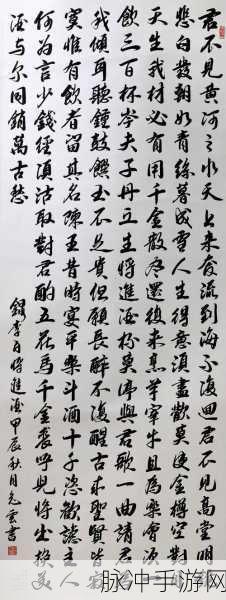 君不見黃河之水天上來奔流到海不復迴君不見高堂明
悲白髮朝如青絲暮成雪人生得意須盡歡莫使金樽空對
天生我材必有用千金散盡還復來烹羊宰牛且為樂會須
飲三百杯岑夫子丹丘生將進酒杯莫停與君歌一曲請君
我傾耳聽鐘鼓饌玉不足貴但願長醉不復醒古來聖賢皆寂
寞惟有飲者留其名陳王昔時宴平樂斗酒十千恣歡謔主人
何為言少錢徑須沽取對君酌五花馬千金裘呼兒將出換美
酒與爾同銷萬古愁
錄李白將進酒甲辰秋月允雲書
脉冲手游网